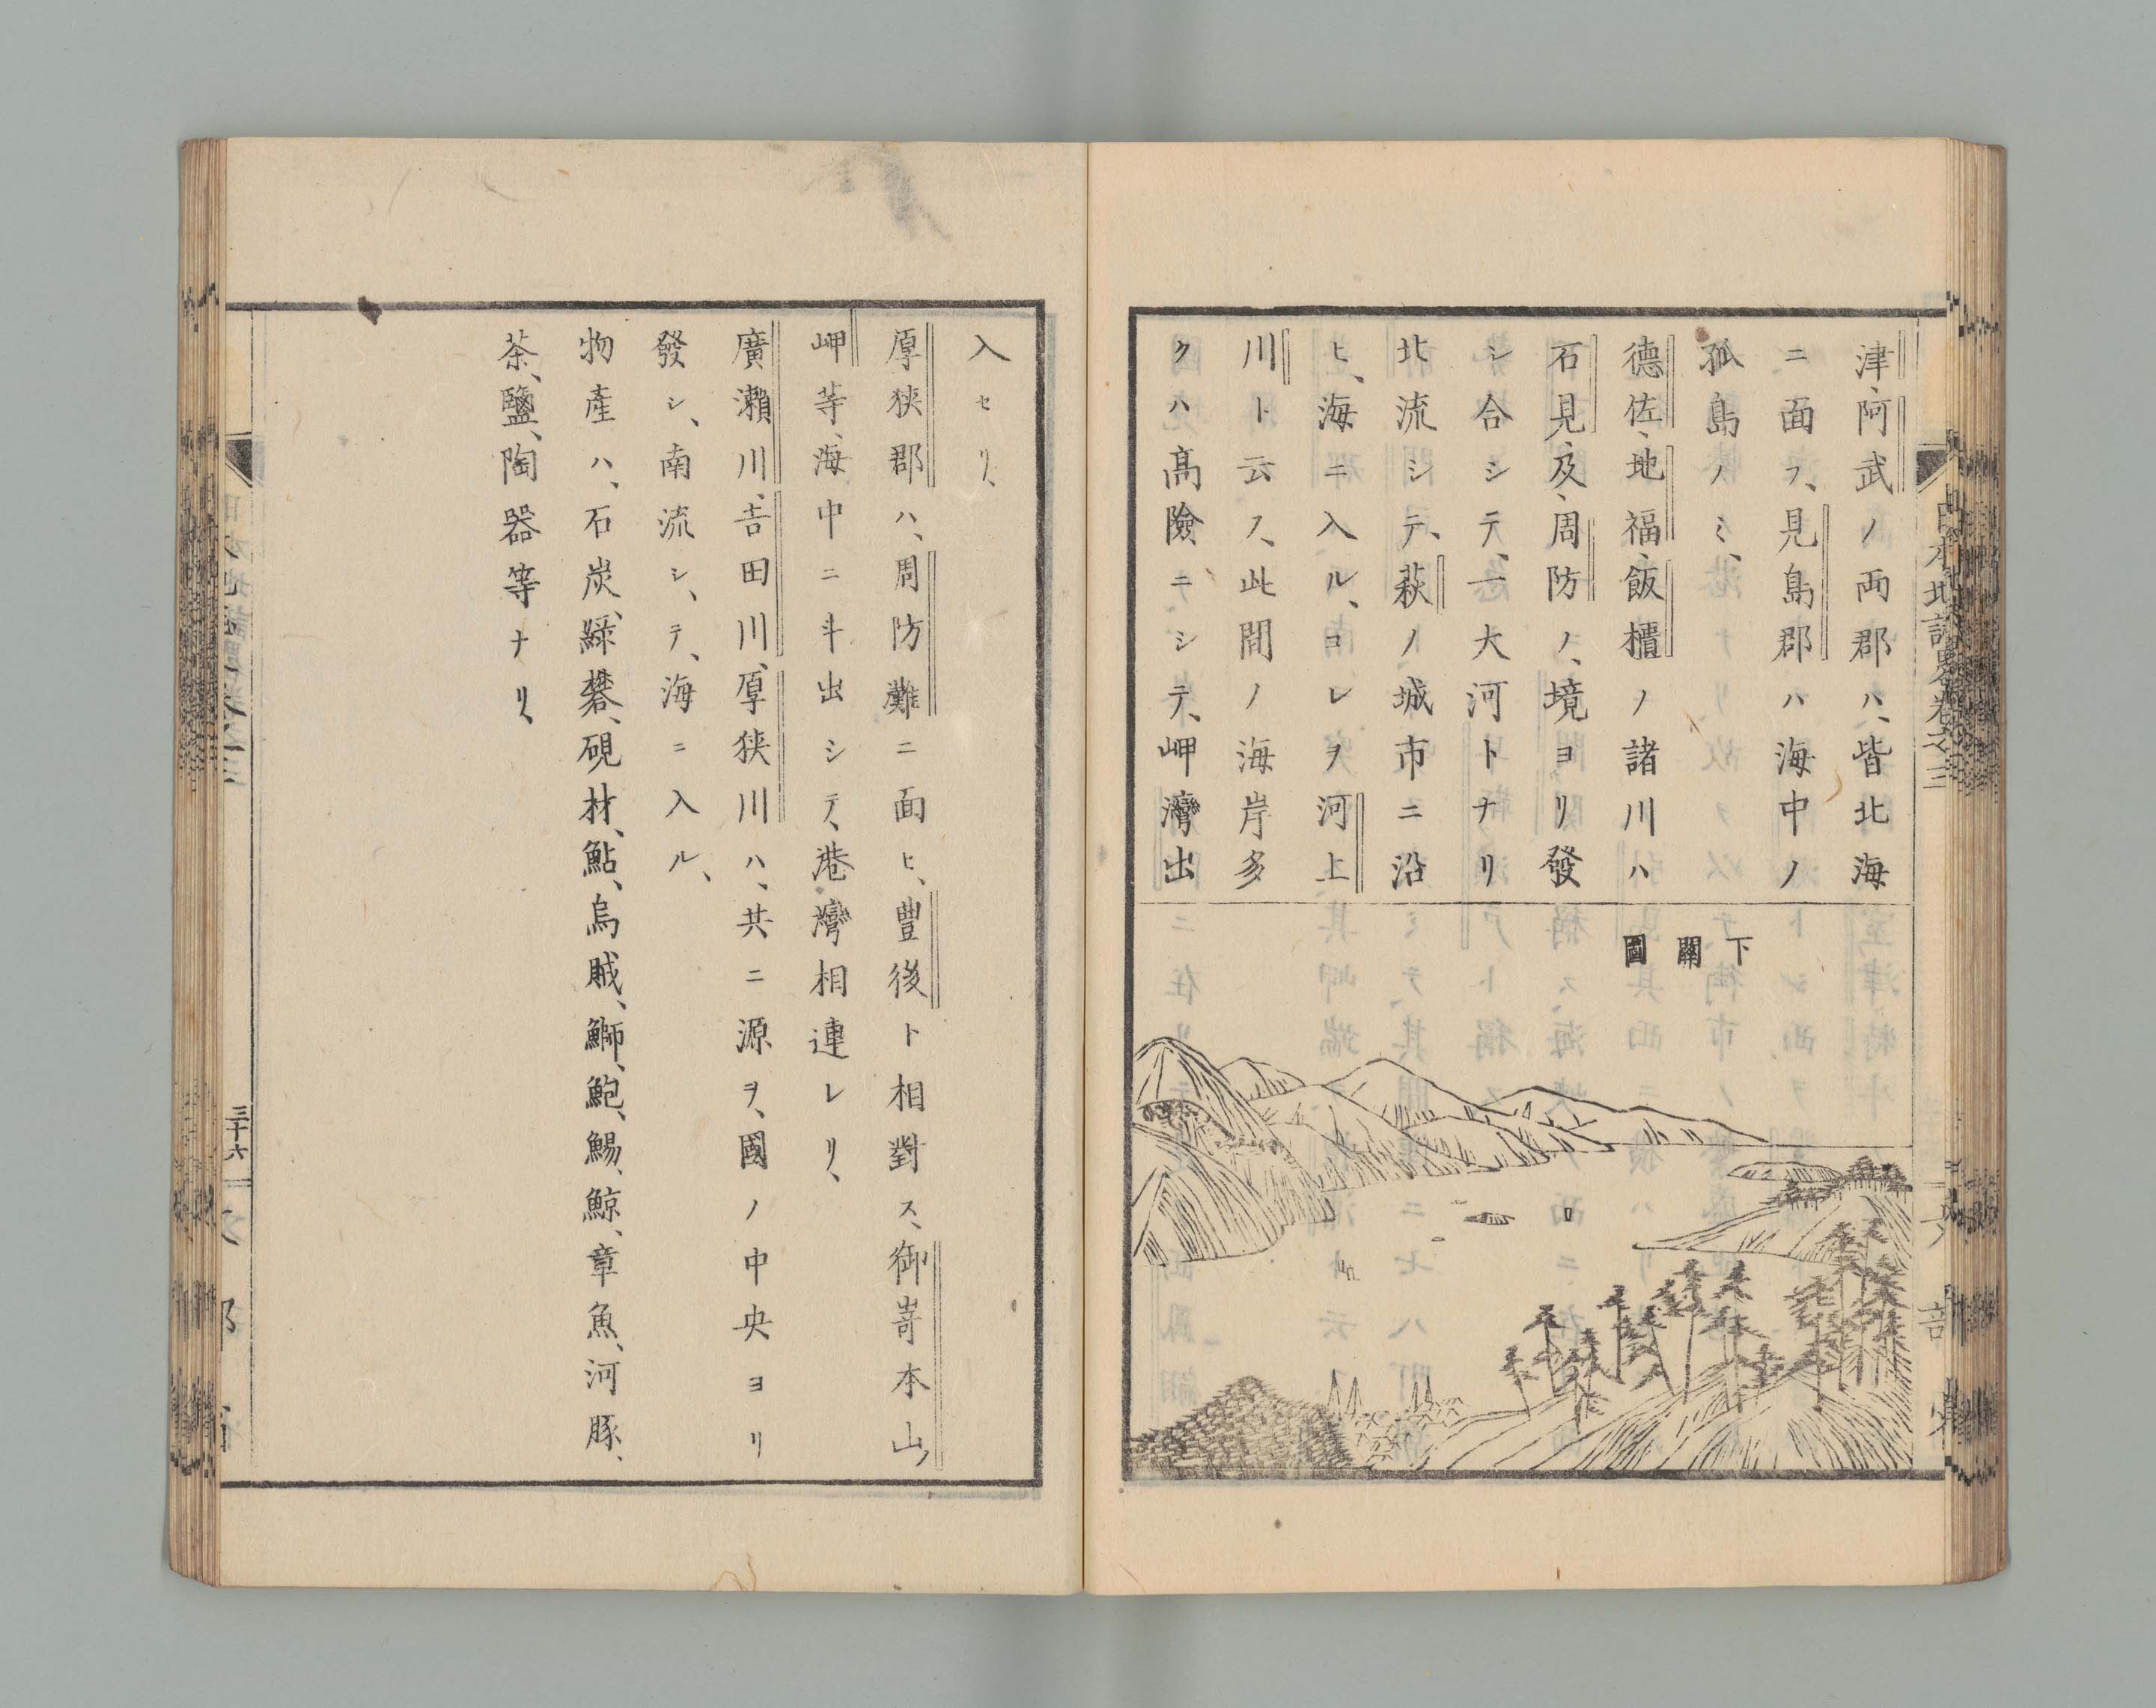 津、阿武ノ両郡ハ、皆北海
ニ面ス、見島郡ハ海中ノ
孤島ノミ、
德佐、地福、飯櫃ノ諸川ハ
石見、及、周防ノ、境ヨリ發
シ合シテ、一大河トナリ
北流シテ、萩ノ城市ニ沿
ヒ、海ニ入ル、コレヲ河上
川ト云フ、此間ノ海岸多
クハ高險ニシテ、岬灣出
下關圖
入セリ、
厚狹郡ハ、周防灘ニ面ヒ、豊後ト相對ス、御嵜本山ノ
岬等、海中ニ斗出シテ、港灣相連レリ、
廣瀬川、吉田川、厚狹川ハ、共ニ源ヲ、國ノ中央ヨリ
發シ、南流シ、テ、海ニ入ル、
物產ハ、石炭、綠礬、硯材、鮎、烏賊、鰤、鮑、鰑、鯨、章魚、河豚、
茶、鹽、陶器等ナリ、
三十六